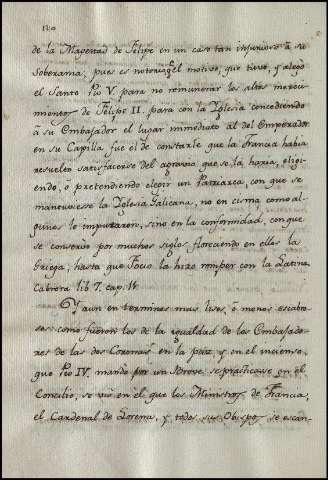 120
de la Magestad de Felipe en un caso tan injurioso à su
Soberania; pues es notorio q.e el motivo, que tuvo, y alegó
el Santo Pio V. para no remunerar los altos mereci-
mientos de Felipe II. para con la Yglesia concediendo
à su Embajador el lugar immediato al del Emperador
en su Capilla fue el de constarle que la Francia havia
resuelto satisfacerse del agravio que se la haria, eligi-
endo, ò pretendiendo elegir un Patriarca, con que se
mantuviesse la Yglesia Galicana, no en cisma como al-
gunos lo imputaron, sino en la conformidad, con que
se conservó por muchos siglos floreciendo en ellos la
Griega; hasta que Focio la hizo romper con la Latina
Cabrera lib. 7. cap. 11.
Y aun en terminos mas lisos, ò menos escabro-
sos como fueron los de la igualdad de los Embajado-
res de las dos Coronas en la paz y en el incienso,
que Pio IV. mandó por un Breve se practicase en el
Concilio, se vió en él que los Ministros de Francia;
el Cardenal de Lorena, y todos sus Obispos se escan-